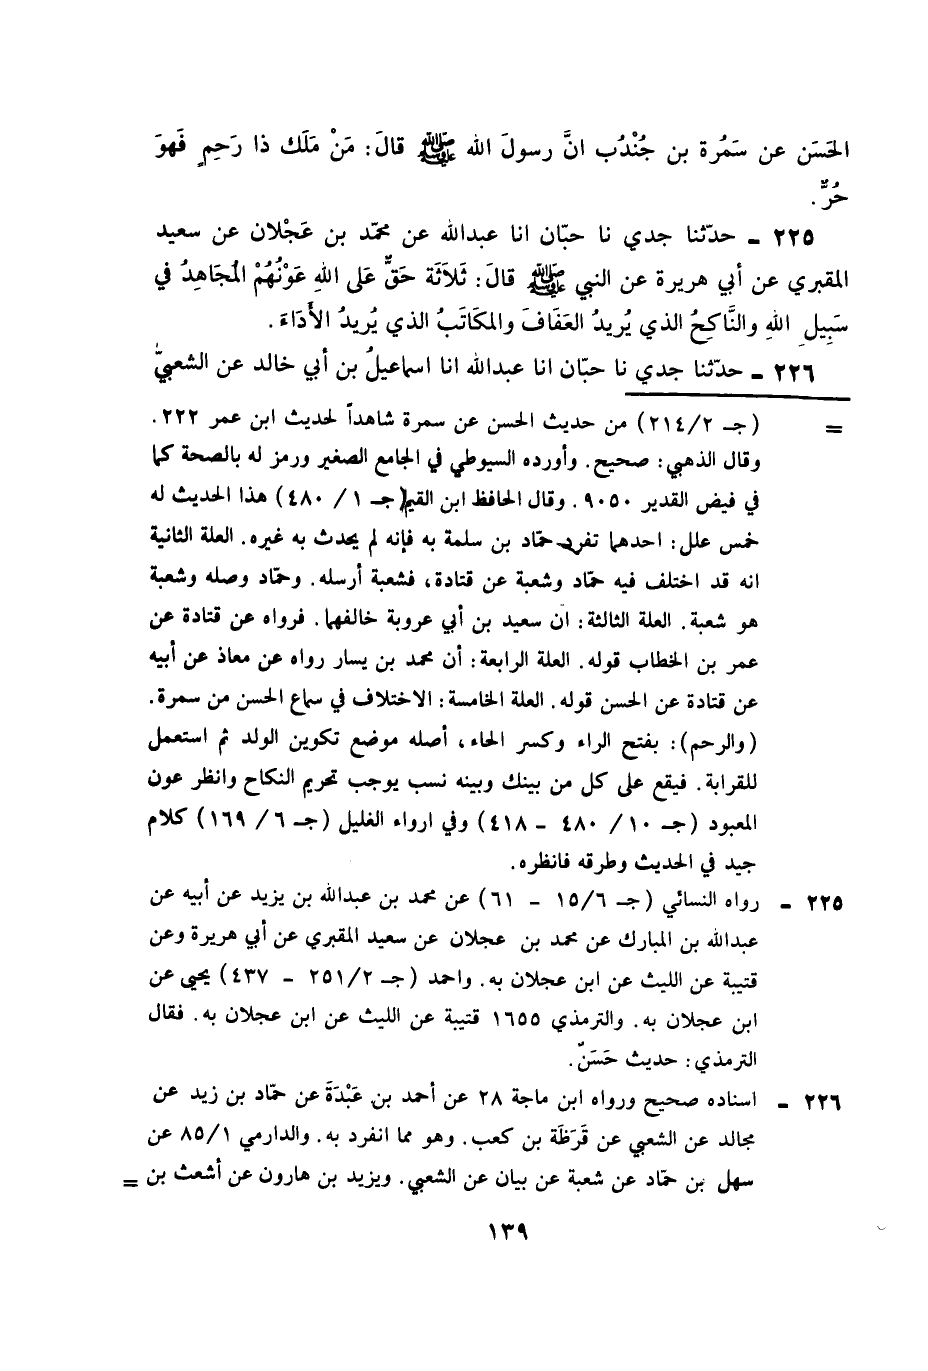 الحَسَن عن سَمُرة بن جُنْدُب انَّ رسولَ الله ﷺ قالَ: مَنْ مَلَك ذا رَحِمٍ فَهوَ
حُرٌّ.
٢٢٥ ـ حدّثنا جدي نا حبّان انا عبدالله عن محمّد بن عَجْلان عن سعيد
المقبري عن أبي هريرة عن النبي ﷺ قالَ: ثَلاَثَة حَقٌّ عَلى اللهِ عَوْنُهُمْ المُجَاهِدُ في
سَبِيلِ اللهِ والنَّاكِحُ الذي يُريدُ العَفَافَ والمكَاتَبُ الذي يُريدُ الأَدَاءَ.
٢٢٦ ـ حدّثنا جدي نا حبّان انا عبدالله انا اسماعيلُ بن أبي خالد عن الشعبيُّ
= (جـ ٢/ ٢١٤) من حديث الحسن عن سمرة شاهداً لحديث ابن عمر ٢٢٢.
وقال الذهبي: صحيح. وأورده السيوطي في الجامع الصغير ورمز له بالصحة كما
في فيض القدير ٩٠٥٠. وقال الحافظ ابن القيم (جـ ١ / ٤٨٠) هذا الحديث له
خمس علل: احدها تفرد حمّاد بن سلمة به فإنه لم يحدث به غيره. العلة الثانية
انه قد اختلف فيه حمّاد وشعبة عن قتادة، فشعبة أرسله. وحمّاد وصله وشعبة
هو شعبة. العلة الثالثة: ان سعيد بن أبي عروبة خالفهما. فرواه عن قتادة عن
عمر بن الخطاب قوله. العلة الرابعة: أن محمد بن يسار رواه عن معاذ عن أبيه
عن قتادة عن الحسن قوله. العلة الخامسة: الاختلاف في سماع الحسن من سمرة.
(والرحم): بفتح الراء وكسر الحاء، أصله موضع تكوين الولد ثم استعمل
للقرابة. فيقع على كل من بينك وبينه نسب يوجب تحريم النكاح وانظر عون
المعبود (جـ ١٠ / ٤٨٠ ـ ٤١٨) وفي ارواء الغليل (جـ ٦ / ١٦٩) كلام
جيد في الحديث وطرقه فانظره.
٢٢٥ ـ رواه النسائي (جـ ١٥/٦ ـ ٦١) عن محمد بن عبدالله بن يزيد عن أبيه عن
عبدالله بن المبارك عن محمد بن عجلان عن سعيد المقبري عن أبي هريرة وعن
قتيبة عن الليث عن ابن عجلان به. واحمد (جـ ٢/ ٢٥١ ـ ٤٣٧) يحيى عن
ابن عجلان به. والترمذي ١٦٥٥ قتيبة عن الليث عن ابن عجلان به. فقال
الترمذي: حديث حَسَنٌ.
٢٢٦ ـ اسناده صحيح ورواه ابن ماجة ٢٨ عن أحمد بن عَبْدَةَ عن حمّاد بن زيد عن
مجالد عن الشعبي عن قَرَظَة بن كعب. وهو مما انفرد به. والدارمي ٨٥/١ عن
سهل بن حمّاد عن شعبة عن بيان عن الشعبي. ويزيد بن هارون عن أشعث بن =
١٣٩